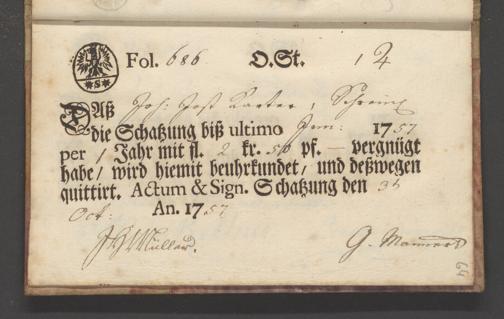 Fol. 686 O.St. 12
*S*
Daß Joh: Jost Karter, Schrein
die Schatzung biß ultimo Jem: 1757
per / Jahr mit fl. 2 kr. 50 pf. — vergnügt
habe / wird hiemit beuhrkundet / und deßwegen
quittirt. Actum & Sign. Schatzung den 3t
Oct: An. 1757
JH Müller. G.
64